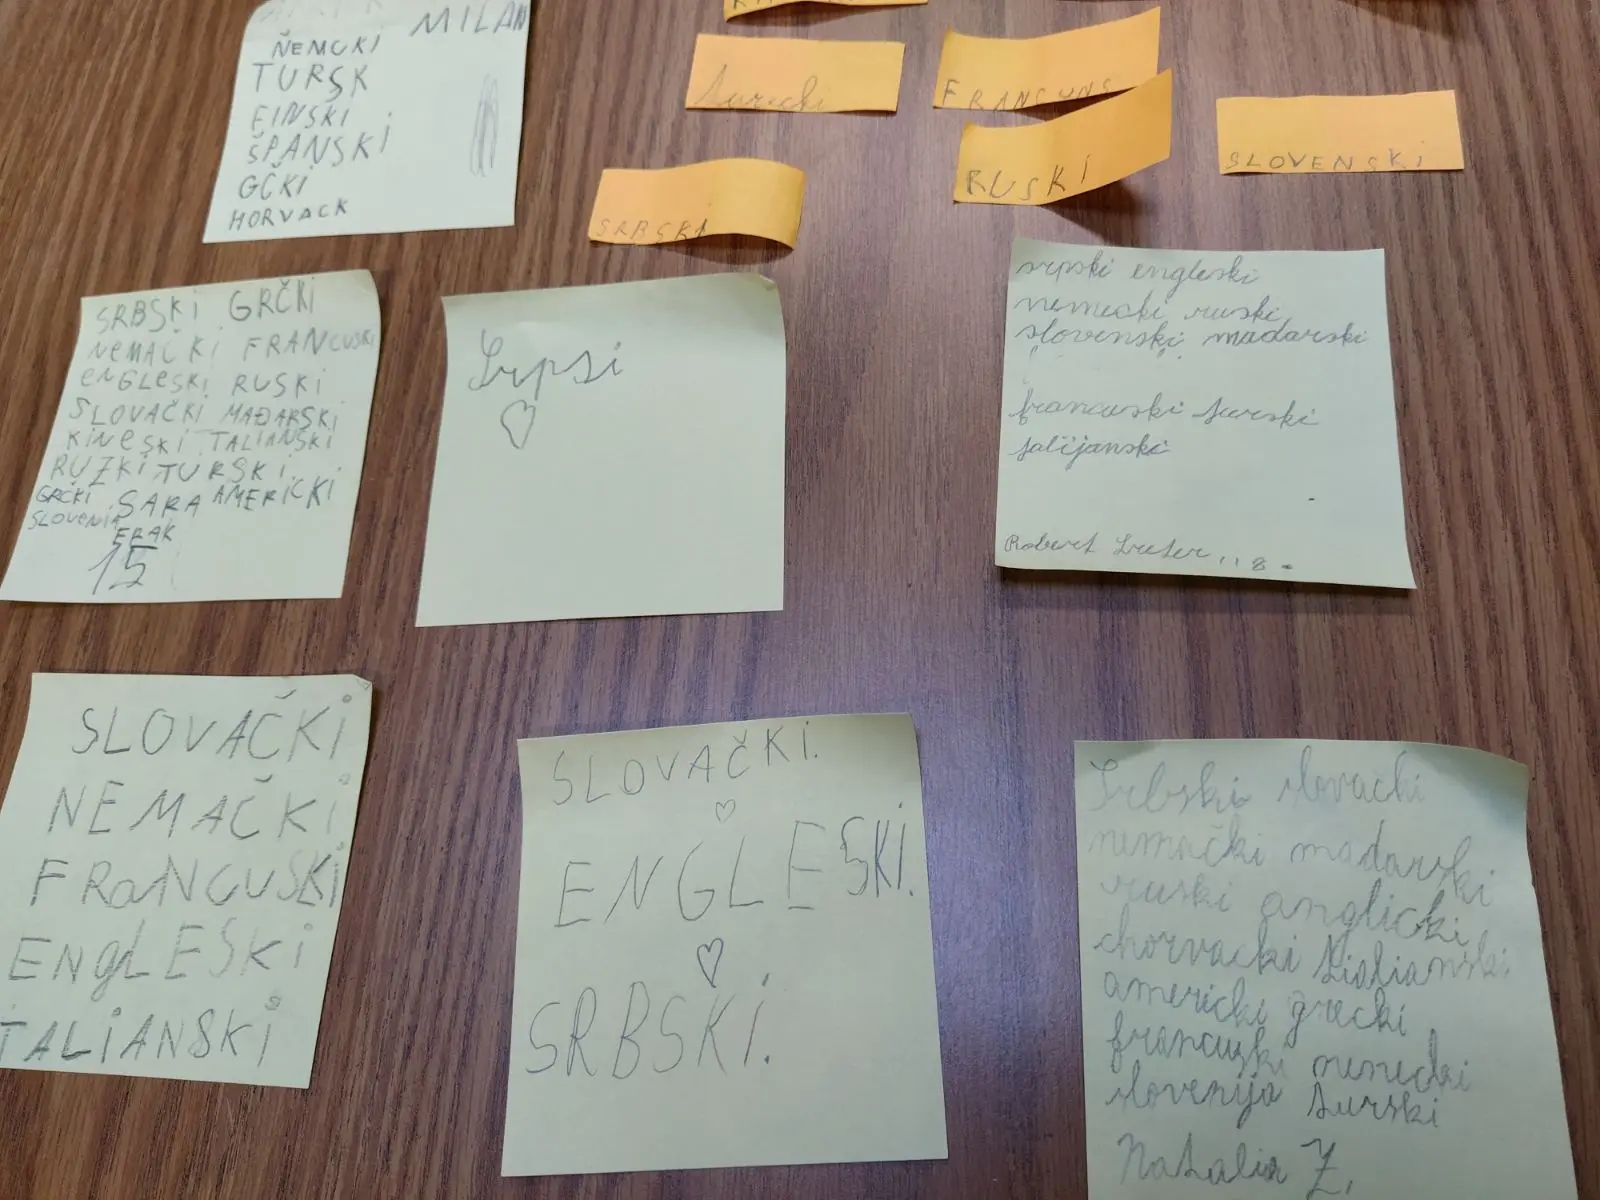 MILAN
ŇEMCKI
TURSK
FINSKI
ŠPANSKI
GČKI
HORVACK
turecki
FRANCUNS
RUSKI
SLOVENSKI
SRBSKI
SRBSKI GRČKI
NEMAČKI FRANCUSKI
eNGLeSKi RUSKI
SLOVAČKI MAĐARSKI
KINeSKI TALIANSKI
RUZKI TURSKI
GRČKI SARA AMERIČKI
SLOVeNiA
ERAK
15
Srpsi
srpski engleski
nemecki ruski
slovenski madarski
francuski turski
talijanski
Robert
SLOVAČKI
NEMAČKI
FRaNCUSKI
ENgLESKI
TALIANSKI
SLOVAČKI.
ENGLESKI.
SRBSKI.
Srbski slovački
nemački madarski
ruski anglicki
chorvacki talianski
americki grecki
francuski nemecki
slovenija turski
Natalia Z.